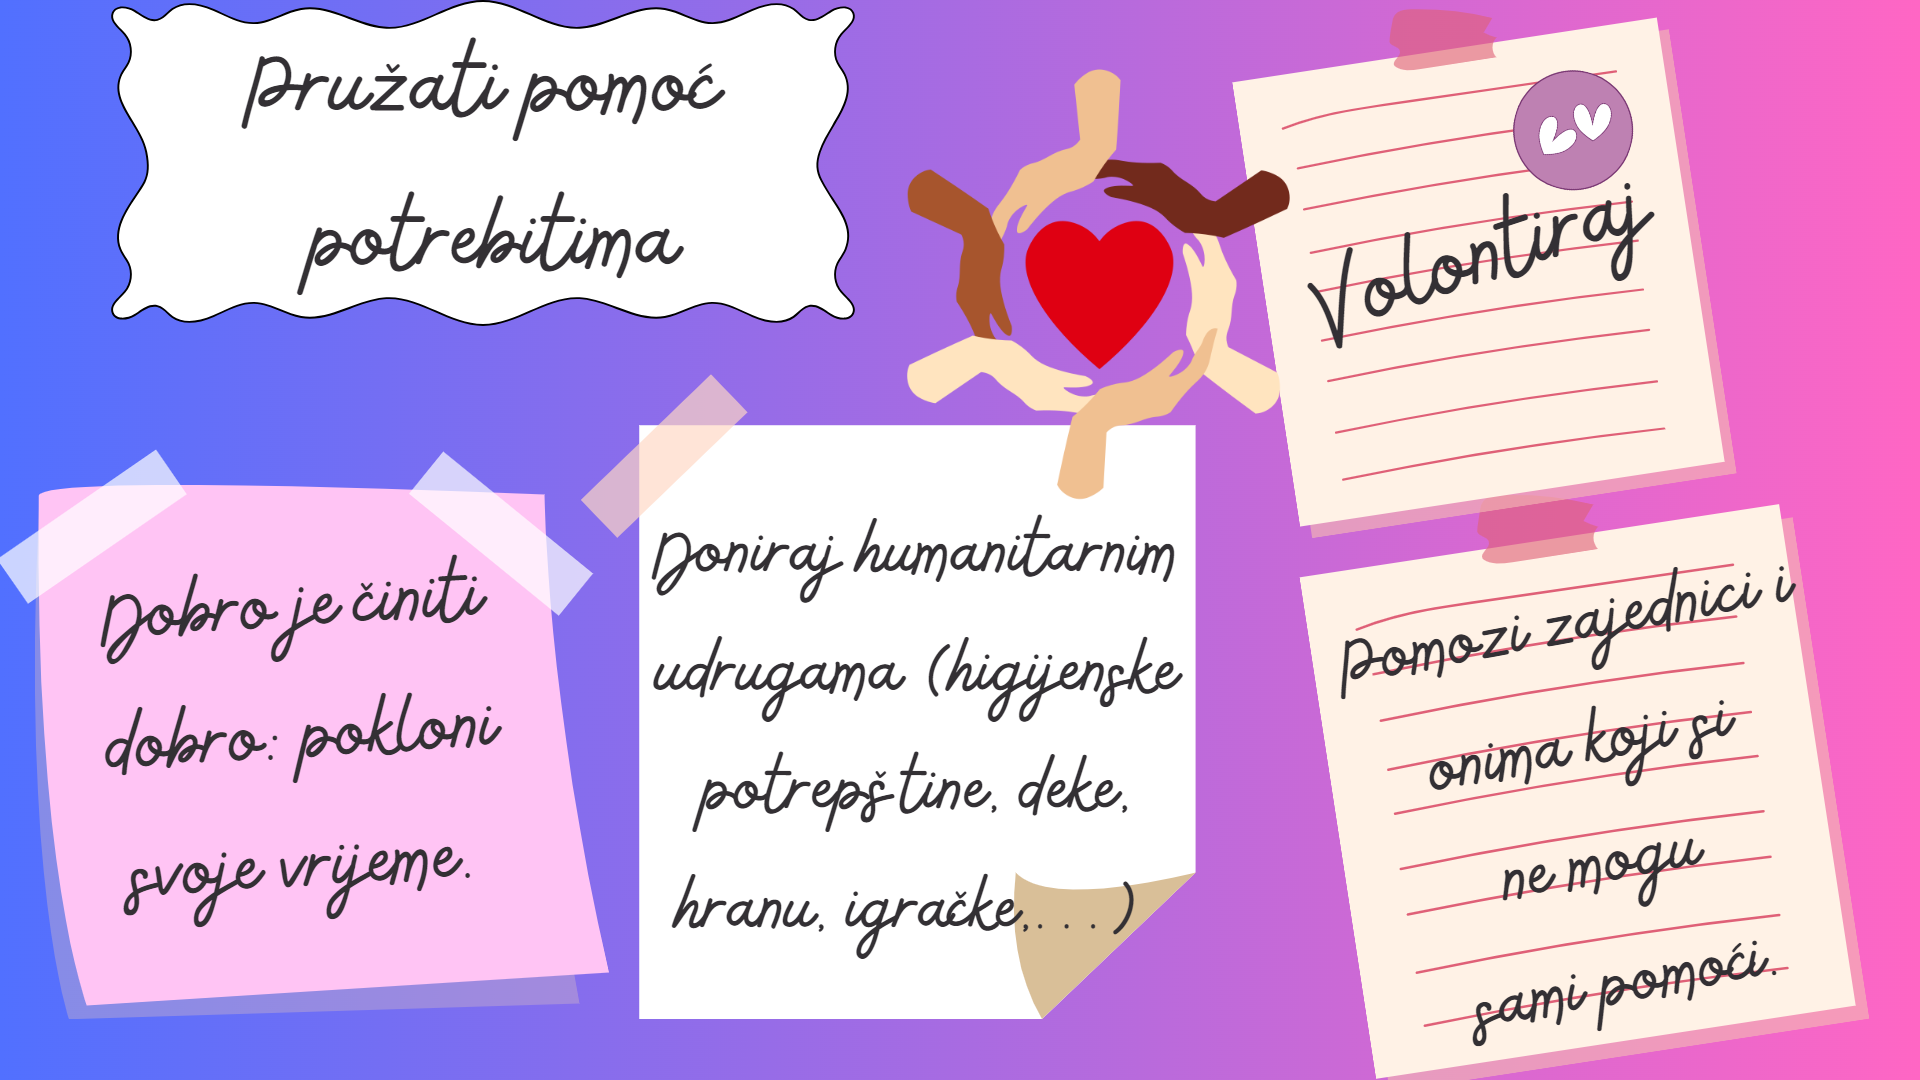 Pružati pomoć
potrebitima
Volontiraj
Dobro je činiti
dobro: pokloni
svoje vrijeme.
Doniraj humanitarnim
udrugama (higijenske
potrepštine, deke,
hranu, igračke,. . . )
Pomozi zajednici i
onima koji si
ne mogu
sami pomoći.